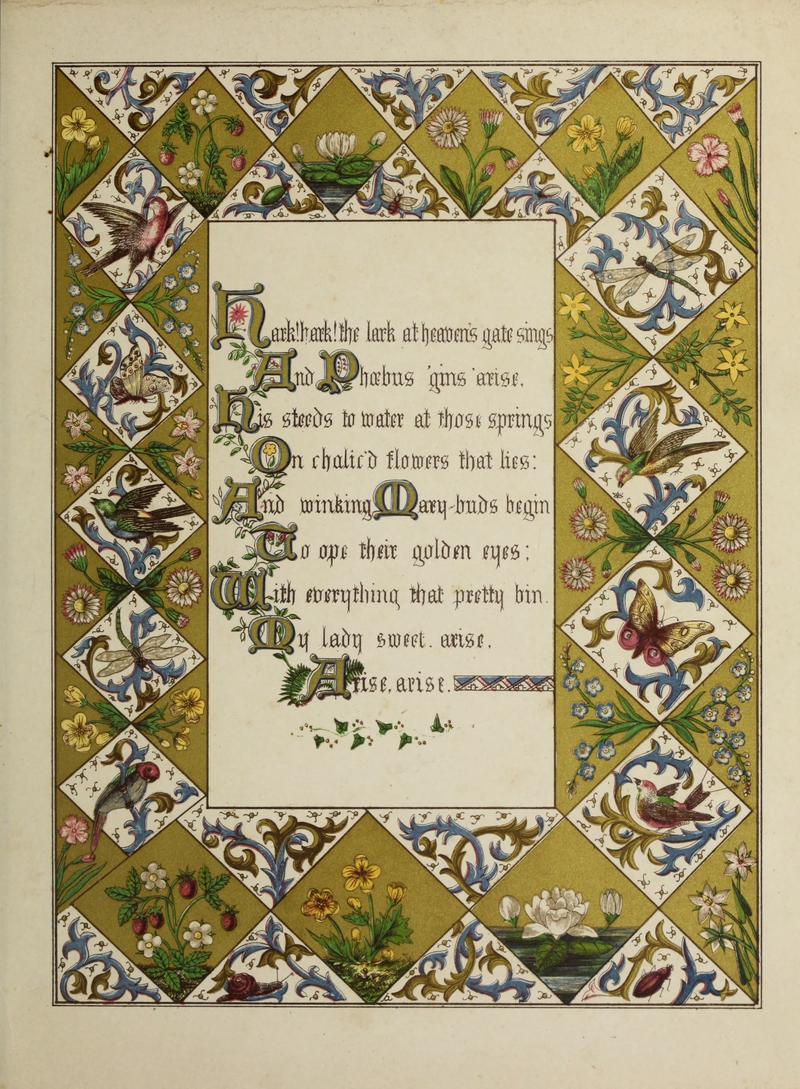 Hark! hark! the lark at heaven's gate sings
And Phœbus 'gins arise,
His steeds to water at those springs
On chalic'd flowers that lies:
And winking Mary-buds begin
To ope their golden eyes;
With everything that pretty bin.
My lady sweet. arise,
Arise, arise.